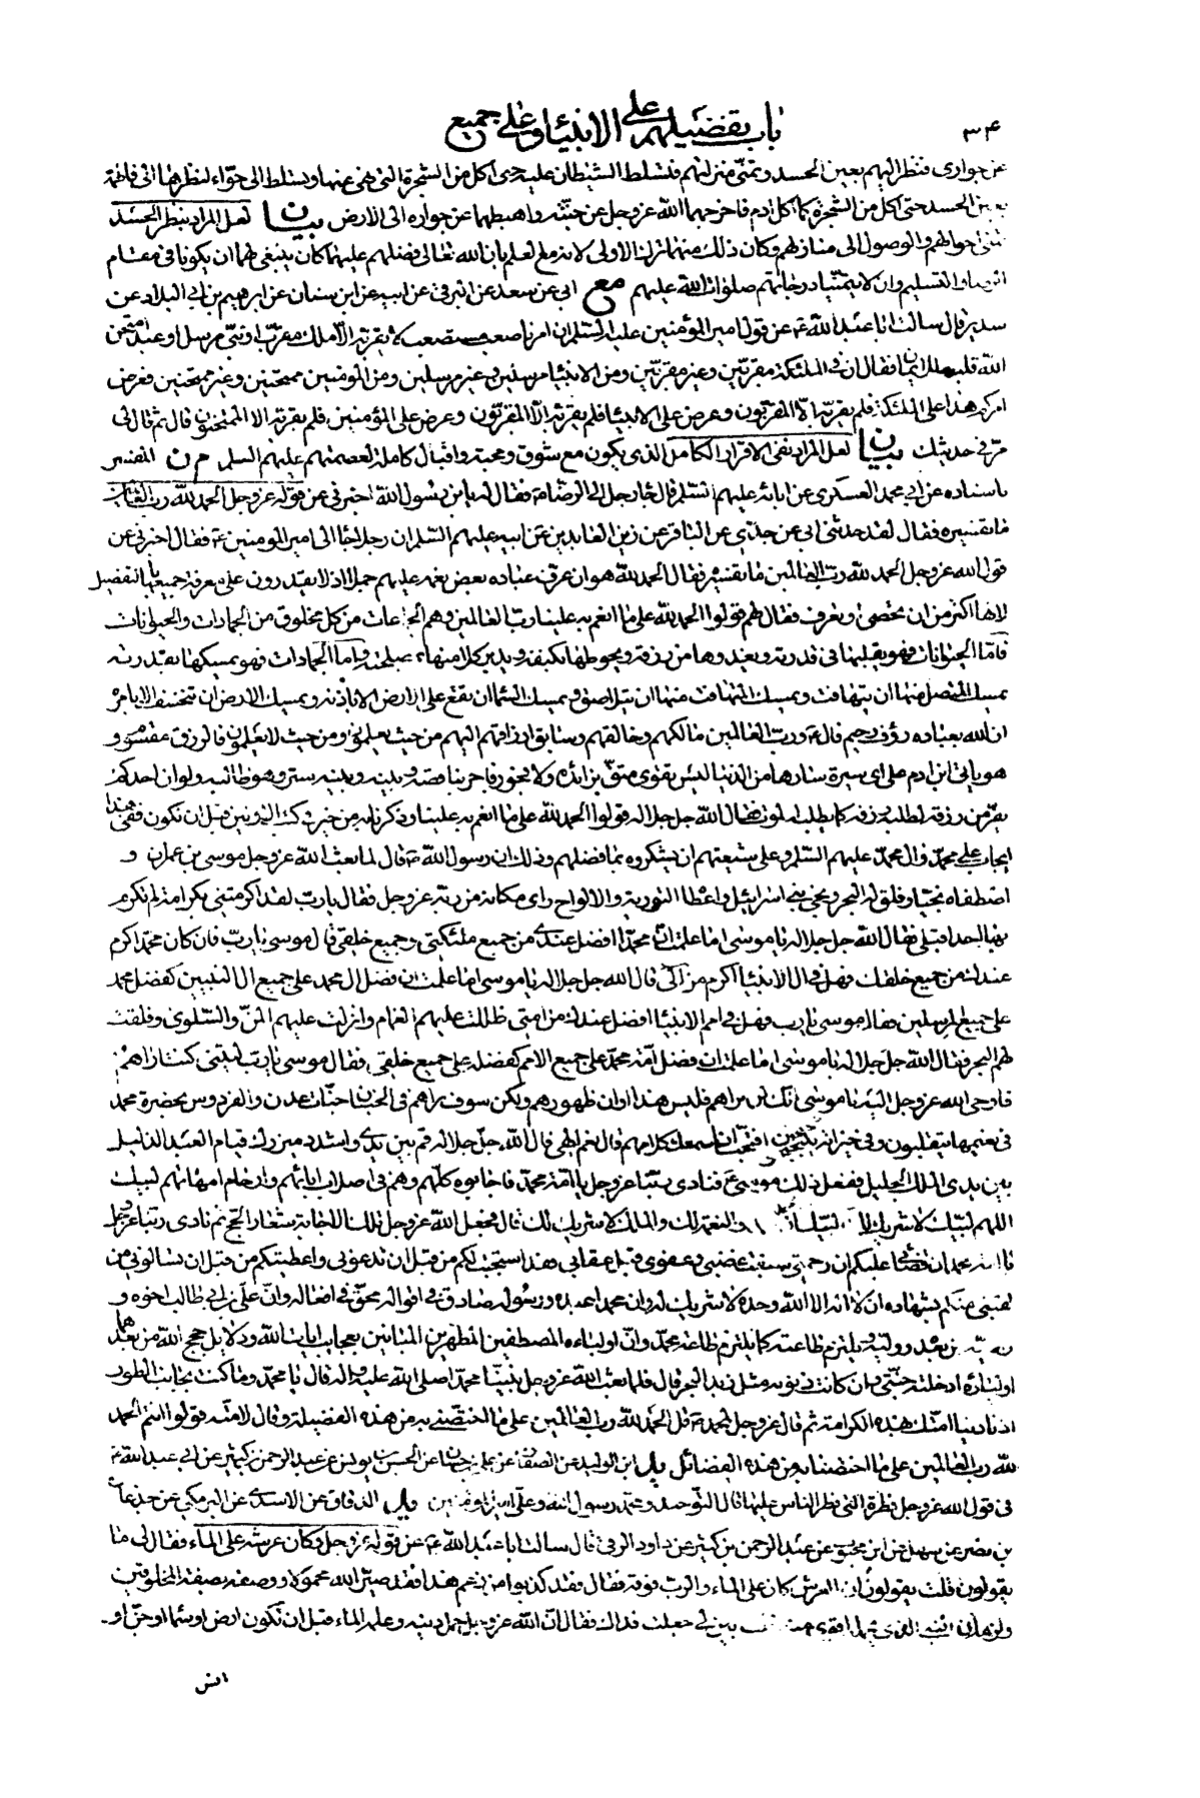 ٣٤ باب تفضيلهم على الانبياء وعلى جميع
عن جواري فنظر اليهم بعين الحسد وتمنى منزلتهم فتسلط الشيطان عليه حتى اكل من الشجرة التي نهي عنها وتسلط الى حواء لنظرها الى فاطمة
بعين الحسد حتى اكل من الشجرة كما اكل ادم فاخرجهما الله عزوجل عن جنته واهبطهما عن جواره الى الارض بيان لعل المراد بنظر الحسد
تمني احوالهم والوصول الى منازلهم وكان ذلك منهما ترك الاولى لانه مع العلم بان الله تعالى فضلهم عليهما كان ينبغي لهما ان يكونا في مقام
الرضا والتسليم وان لا يتمنيا درجاتهم صلوات الله عليهم مع ابي عن سعد عن البرقي عن ابيه عن ابن سنان عن ابراهيم بن ابي البلاد عن
سدير قال سالت ابا عبد الله ع عن قول امير المؤمنين عليه السلم ان امرنا صعب مستصعب لا يقر به الا ملك مقرب او نبي مرسل او عبد امتحن
الله قلبه للايمان فقال ان في الملئكة مقربين وغير مقربين ومن الانبياء مرسلين وغير مرسلين ومن المؤمنين ممتحنين وغير ممتحنين فعرض
امركم هذا على الملئكة فلم يقر به الا المقربون وعرض على الانبياء فلم يقر به الا المقربون وعرض على المؤمنين فلم يقر به الا الممتحنون قال ثم قال لي
مر في حديثك بيان لعل المراد نفي الاقرار الكامل الذي يكون مع شوق ومحبة واقبال كاملة لعصمتهم عليهم السلم م ن المفسر
باسناده عن ابي محمد العسكري عن ابائه عليهم السلم قال جاء رجل الى الرضا ع فقال له يا بن رسول الله اخبرني عن قوله عزوجل الحمد لله رب العالمين
ما تفسيره فقال لقد حدثني ابي عن جدي عن الباقر عن زين العابدين عن ابيه عليهم السلم ان رجلا جاء الى امير المؤمنين ع فقال اخبرني عن
قول الله عزوجل الحمد لله رب العالمين ما تفسيره فقال الحمد لله هو ان عرف عباده بعض نعمه عليهم جملا اذ لا يقدرون على معرفة جميعها بالتفصيل
لانها اكثر من ان تحصى او تعرف فقال لهم قولوا الحمد لله على ما انعم به علينا رب العالمين وهم الجماعات من كل مخلوق من الجمادات والحيوانات
فاما الحيوانات فهو يقلبها في قدرته ويغذوها من رزقه ويحوطها بكنفه ويدبر كلا منها بمصلحته واما الجمادات فهو يمسكها بقدرته
يمسك المتصل منها ان يتهافت ويمسك المتهافت منها ان يتلاصق ويمسك السماء ان تقع على الارض الا باذنه ويمسك الارض ان تنخسف الا بامره
ان الله بعباده رؤف رحيم قال ع ورب العالمين مالكهم وخالقهم وسابق ارزاقهم اليهم من حيث يعلمون ومن حيث لا يعلمون فالرزق مقسوم و
هو ياتي ابن ادم على اي سيرة سارها من الدنيا ليس تقوى متق بزائده ولا فجور فاجر بناقصه وبينه وبينه ستر وهو طالبه ولو ان احدكم
يفر من رزقه لطلبه رزقه كما يطلبه الموت فقال الله جل جلاله قولوا الحمد لله على ما انعم به علينا وذكرنا به من خير في كتب الاولين قبل ان نكون ففي هذا
ايجاب على محمد وال محمد عليهم السلم وعلى شيعتهم ان يشكروه بما فضلهم وذلك ان رسول الله ص قال لما بعث الله عزوجل موسى بن عمران و
اصطفاه نجيا وفلق له البحر ونجى بني اسرائيل واعطاه التورية والالواح راى مكانه من ربه عزوجل فقال يا رب لقد اكرمتني بكرامة لم تكرم
بها احدا قبلي فقال الله جل جلاله يا موسى اما علمت ان محمدا افضل عندي من جميع ملئكتي وجميع خلقي قال موسى يا رب فان كان محمد اكرم
عندك من جميع خلقك فهل في ال الانبياء اكرم من آلي قال الله جل جلاله يا موسى اما علمت ان فضل ال محمد على جميع ال النبيين كفضل محمد
على جميع المرسلين فقال موسى يا رب فهل في امم الانبياء افضل عندك من امتي ظللت عليهم الغمام وانزلت عليهم المن والسلوى وفلقت
لهم البحر فقال الله جل جلاله يا موسى اما علمت ان فضل امة محمد على جميع الامم كفضله على جميع خلقي فقال موسى يا رب ليتني كنت اراهم
فاوحى الله عزوجل اليه يا موسى انك لن تراهم فليس هذا اوان ظهورهم ولكن سوف تراهم في الجنان جنات عدن والفردوس بحضرة محمد
في نعيمها يتقلبون وفي خيراتها يتبحبحون افتحب ان اسمعك كلامهم قال نعم الهي قال الله جل جلاله قم بين يدي واشدد ميزرك قيام العبد الذليل
بين يدي الملك الجليل ففعل ذلك موسى ع فنادى ربنا عزوجل يا امة محمد فاجابوه كلهم وهم في اصلاب ابائهم وارحام امهاتهم لبيك
اللهم لبيك لا شريك لك لبيك ان الحمد والنعمة لك والملك لا شريك لك قال فجعل الله عزوجل تلك الاجابة شعار الحج ثم نادى ربنا عزوجل
يا امة محمد ان قضائي عليكم ان رحمتي سبقت غضبي وعفوي قبل عقابي فقد استجبت لكم من قبل ان تدعوني واعطيتكم من قبل ان تسالوني من
لقيني منكم بشهادة ان لا اله الا الله وحده لا شريك له وان محمدا عبده ورسوله صادق في اقواله محق في افعاله وان علي بن ابي طالب اخوه و
وصيه من بعده ووليه يلتزم طاعته كما يلتزم طاعة محمد وان اولياءه المصطفين المطهرين المبانين بعجايب ايات الله ودلايل حجج الله من بعدهما
اولياؤه ادخلته جنتي وان كانت ذنوبه مثل زبد البحر قال فلما بعث الله عزوجل نبينا محمدا صلى الله عليه واله قال يا محمد وما كنت بجانب الطور
اذ نادينا امتك بهذه الكرامة ثم قال عزوجل لمحمد ص قل الحمد لله رب العالمين على ما اختصني به من هذه الفضيلة وقال لامته قولوا انتم الحمد
لله رب العالمين على ما اختصنا به من هذه الفضائل يد ابن الوليد عن الصفار عن علي بن حسان عن الحسن بن يونس عن عبد الرحمن بن كثير عن ابي عبد الله ع
في قول الله عزوجل فطرة التي فطر الناس عليها قال التوحيد ومحمد رسول الله وعلي امير المؤمنين يد الدقاق عن الاسدي عن البرمكي عن جذعان
بن نصر عن سهل عن ابن محبوب عن عبد الرحمن بن كثير عن داود الرقي قال سالت ابا عبد الله ع عن قوله عزوجل وكان عرشه على الماء فقال لي ما
يقولون قلت يقولون ان العرش كان على الماء والرب فوقه فقال فقد كذبوا من زعم هذا فقد صير الله محمولا ووصفه بصفة المخلوقين
ولزمه ان الشيء الذي يحمله اقوى منه قلت بين لي جعلت فداك فقال ان الله عزوجل حمل دينه وعلمه الماء قبل ان تكون ارض او سماء او جن او
انس